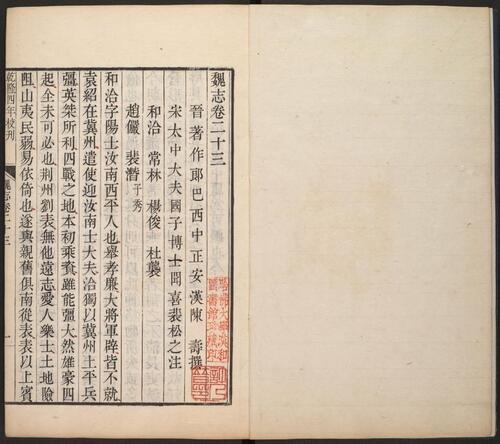 魏志卷二十三
晉著作郎巴西中正安漢陳壽撰
宋太中大夫國子博士聞喜裴松之注
和洽 常林 楊俊 杜襲
趙儼 裴潛子秀
和洽字陽士汝南西平人也舉孝廉大將軍辟皆不就
袁紹在冀州遣使迎汝南士大夫洽獨以冀州土平兵
彊英桀所利四戰之地本初乘資雖能彊大然雄豪四
起全未可必也荊州劉表無他遠志愛人樂士土地險
阻山夷民弱易依倚也遂與親舊俱南從表表以上賓
乾隆四年校刊
魏志卷二十三
一
哈佛大學漢和
圖書館珍藏印